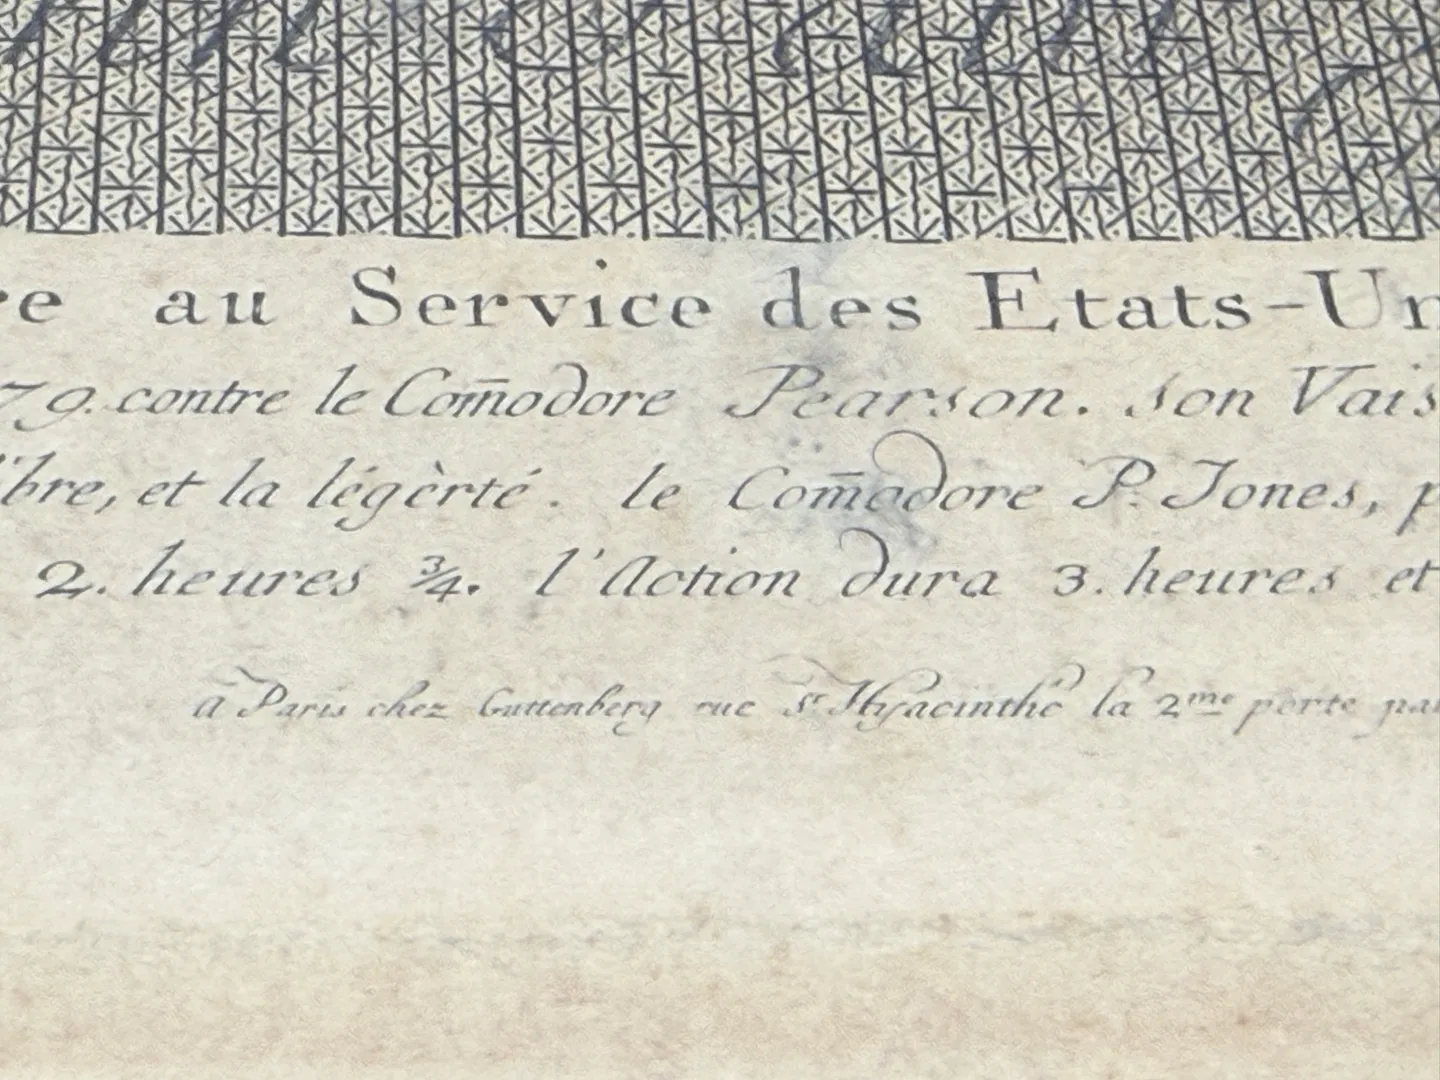 re au Service des Etats-Un
79. contre le Com̄odore Pearson. son Vais
ibre, et la légèrté. le Com̄odore P. Jones, p
2. heures ¾. l'Action dura 3. heures et
a Paris chez Guttenberg rue St. Hyacinthe la 2me porte par